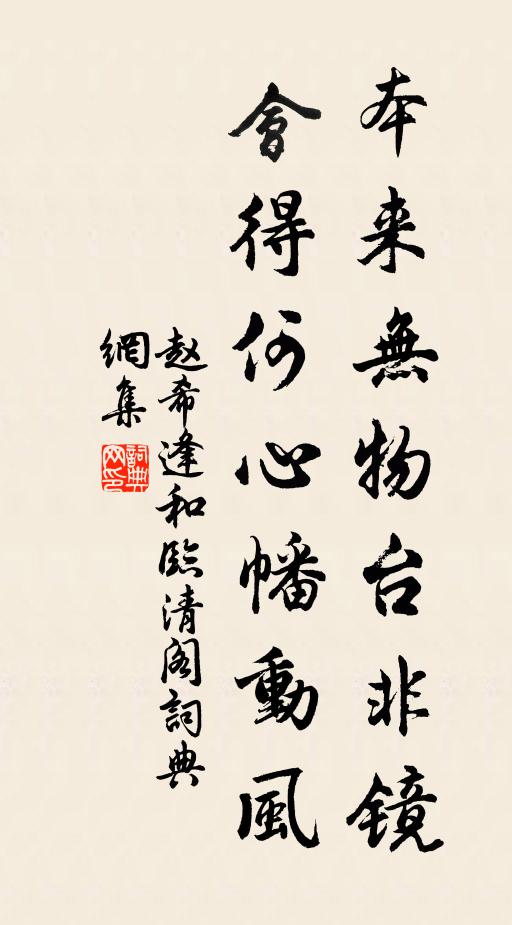 本来無物台非鏡
會得何心幡動風
赵希逢和臨清阁詞典
網集
詞典
网印